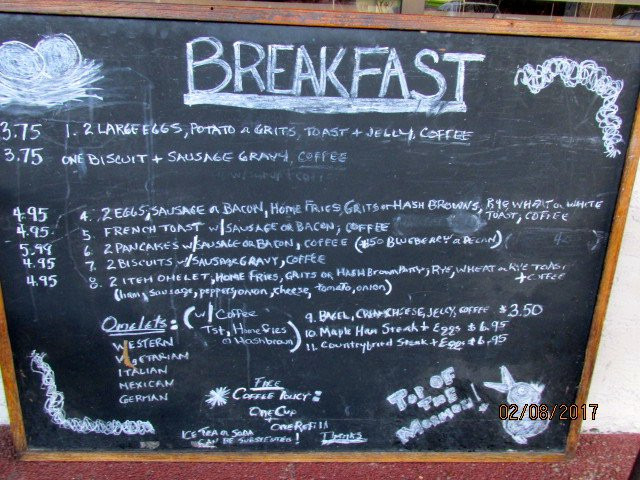 BREAKFAST
3.75 1. 2 LARGE EGGS, POTATO or GRITS, TOAST + JELLY, COFFEE
3.75 ONE BISCUIT + SAUSAGE GRAVY, COFFEE
4.95 4. 2 EGGS, SAUSAGE OR BACON, HOME FRIES, GRITS OR HASH BROWNS, RYE, WHEAT or WHITE
TOAST, COFFEE
4.95 5. FRENCH TOAST w/ SAUSAGE or BACON, COFFEE
5.99 6. 2 PANCAKES w/ SAUSAGE or BACON, COFFEE ($.50 BLUEBERRY or PECAN)
4.95 7. 2 BISCUITS w/ SAUSAGE GRAVY, COFFEE
4.95 8. 2 ITEM OMELET, HOME FRIES, GRITS OR HASH BROWN PATTY, RYE, WHEAT or RYE TOAST
+ COFFEE
(ham, sausage, peppers, onion, cheese, tomato, onion)
Omelets: (w/ Coffee
Tst, Home fries
or Hashbrown)
WESTERN
VEGETARIAN
ITALIAN
MEXICAN
GERMAN
9. BAGEL, CREAM CHEESE, JELLY, COFFEE $3.50
10. Maple Ham Steak + Eggs $6.95
11. Country Fried Steak + Eggs $6.95
FREE
COFFEE POLICY:
ONE CUP
ONE REFILL
ICE TEA or SODA
CAN BE SUBSTITUTED! Thanks
TOP OF
THE
MORNIN!
02/06/2017